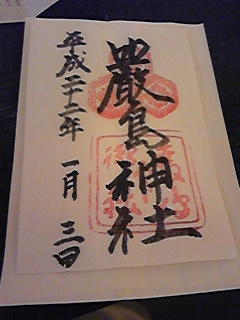 嚴島神社
平成二十二年 一月 三日